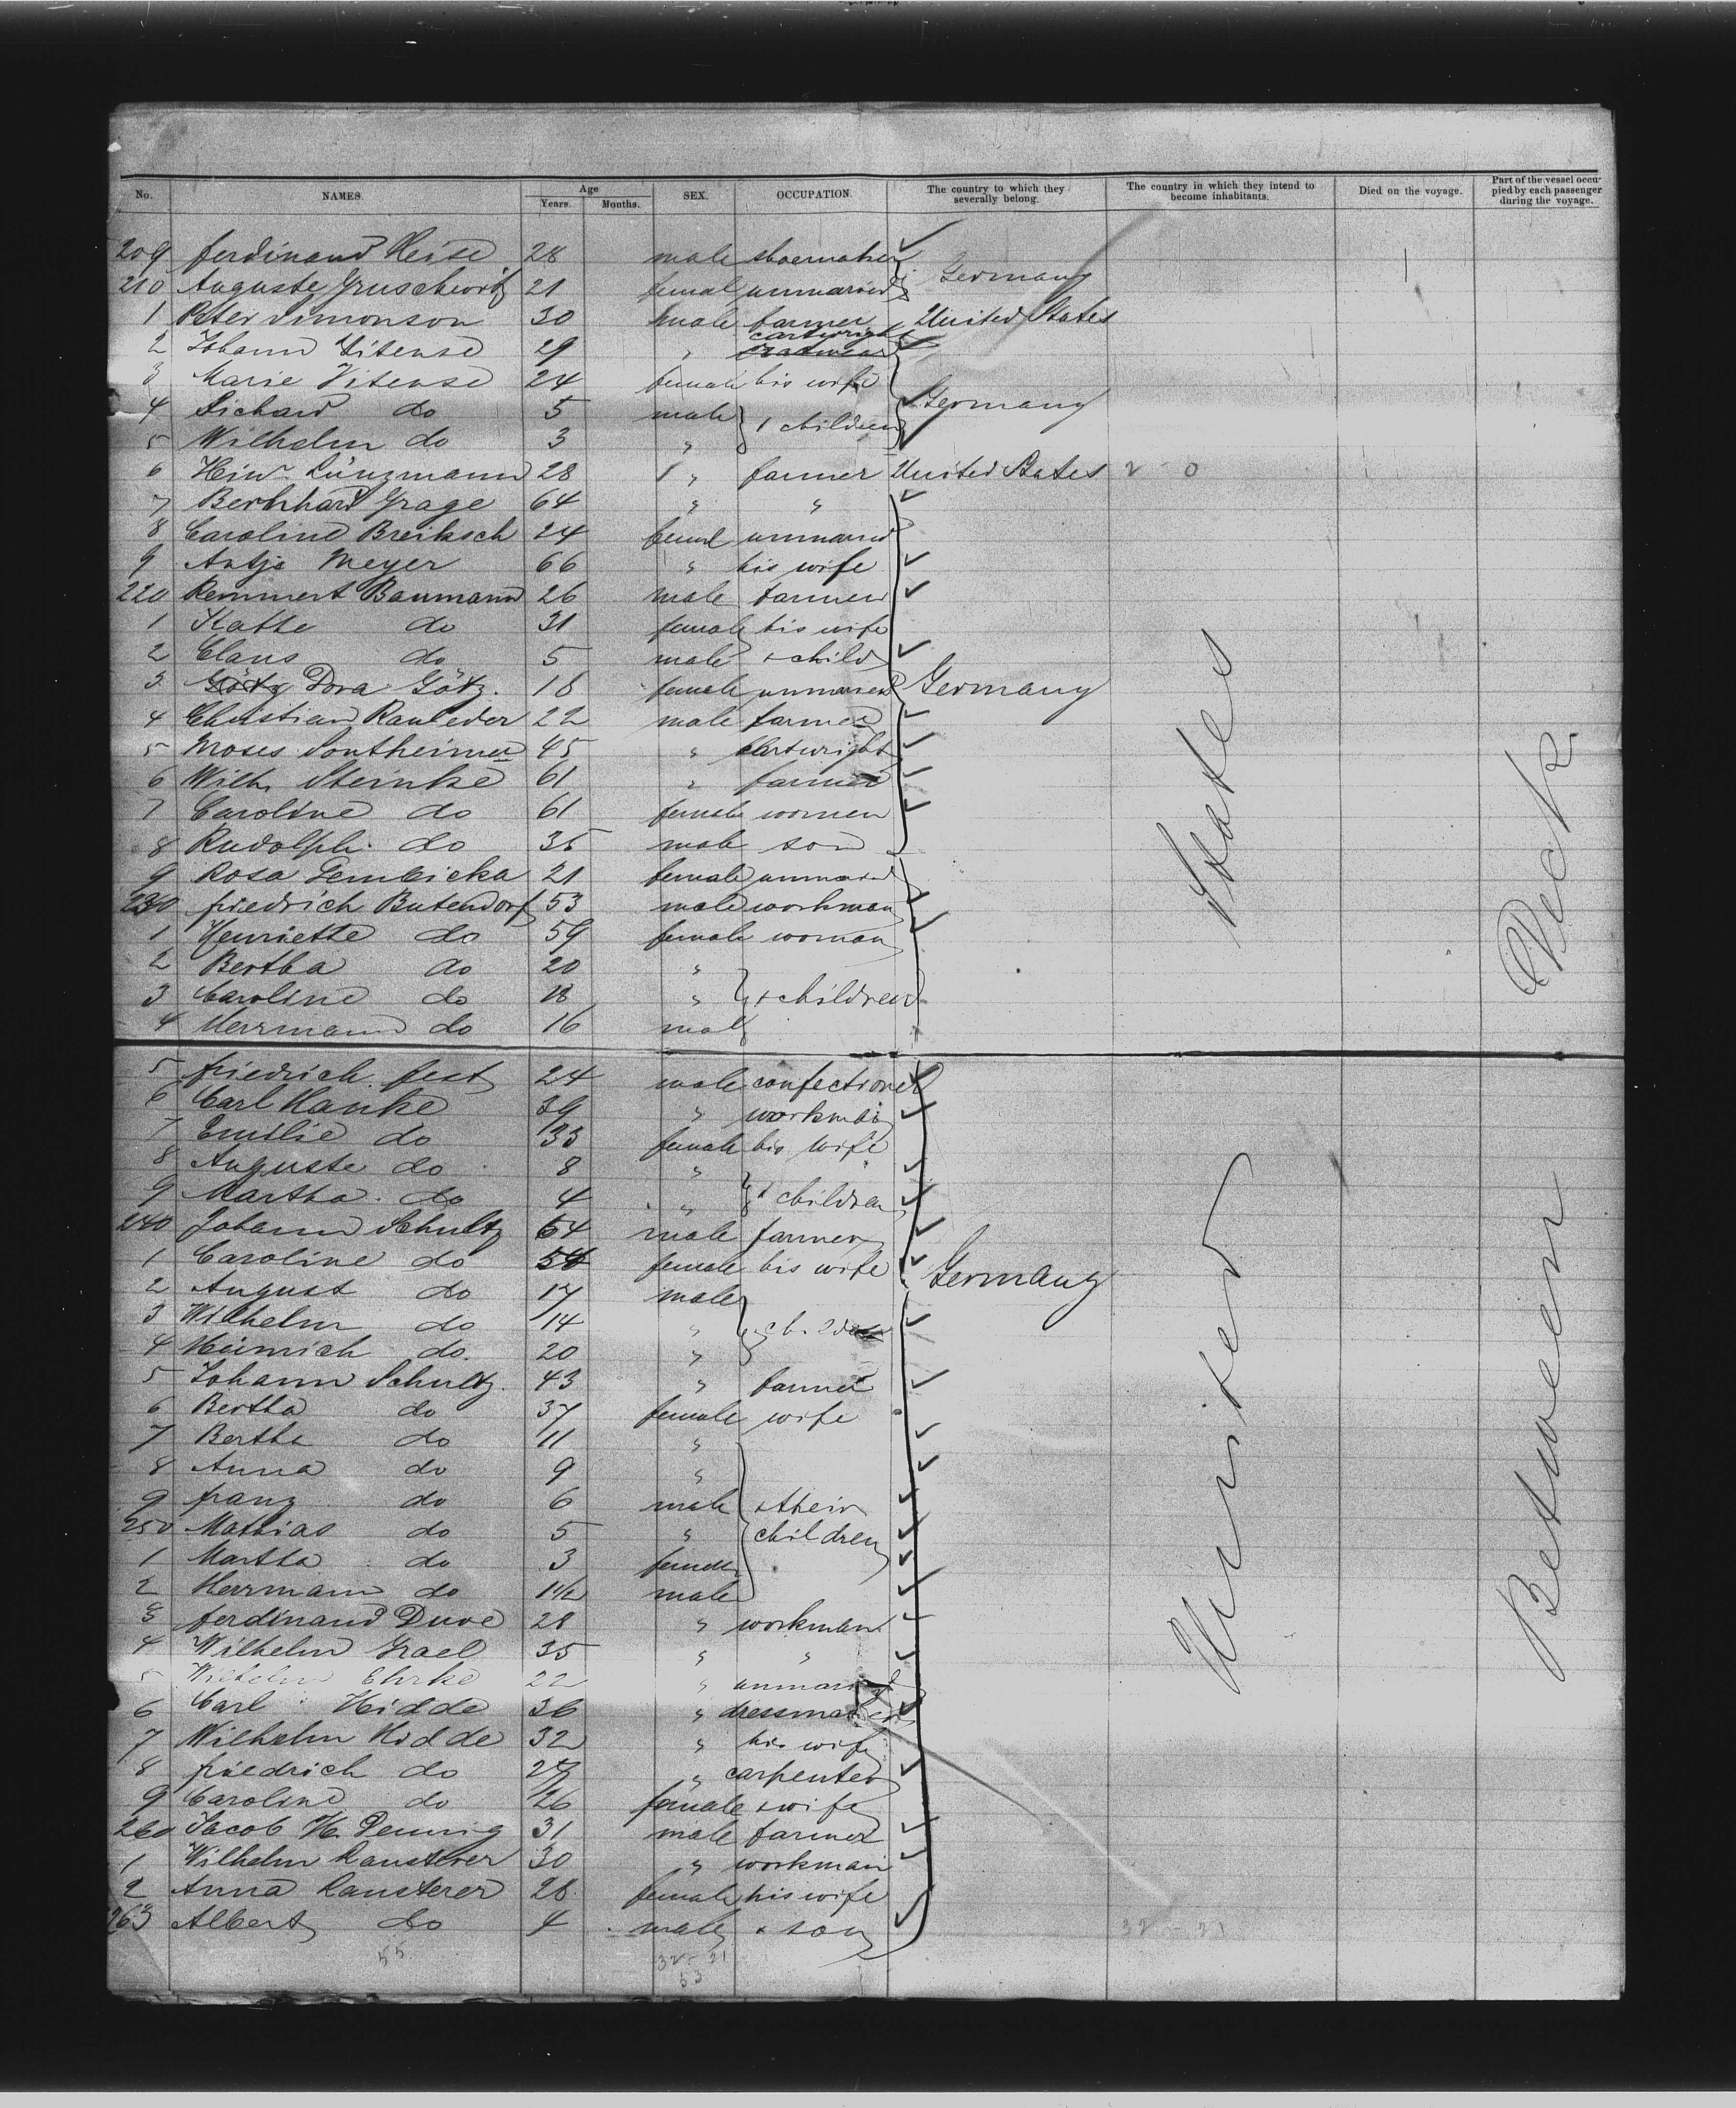 No. NAMES. Age Years. Months. SEX. OCCUPATION. The country to which they severally belong. The country in which they intend to become inhabitants. Died on the voyage. Part of the vessel occupied by each passenger during the voyage.
209 Ferdinand Heise 28 male shoemaker
210 Auguste Gruschwitz 21 femal unmarried Germany
1 Peter Simonson 30 male farmer United States
2 Johann Vitense 29 " cartwright
3 Marie Vitense 24 female his wife
4 Richard do 5 male Germany
5 Wilhelm do 3 " children
6 Hinr Lünzmann 28 " farmer United States 2 - 0
7 Bernhard Grage 64 " "
8 Caroline Breiksch 24 femal unmarried
9 Antje Meyer 66 " his wife
220 Remmert Baumann 26 male farmer
1 Katte do 31 female his wife
2 Claus do 5 male + child
3 Götz Dora Götz. 18 female unmarried Germany
4 Christian Rauleder 22 male farmer
5 Moses Sontheimer 45 " Cartwright
6 Wilh. Steinke 61 " farmer
7 Caroline do 61 female women
8 Rudolph do 35 male son
9 Rosa Dembicka 21 female unmarried
230 Friedrich Butendorf 53 male workman
1 Henriette do 59 female woman
2 Bertha do 20 "
3 Caroline do 18 " + children
4 Herrmann do 16 male
5 Friedrich Fest 24 male confectioner
6 Carl Hanke 39 " workman
7 Emilie do 33 female his wife
8 Auguste do 8 "
9 Martha do 4 " + children
240 Johann Schultz 64 male farmer
1 Caroline do 54 female his wife Germany
2 August do 17 male
3 Wilhelm do 14 " children
4 Heinrich do. 20 "
5 Johann Schultz. 43 " farmer
6 Bertha do 37 female wife
7 Bertha do 11 "
8 Anna do 9 "
9 Franz do 6 male + their
250 Mathias do 5 " children
1 Martha do 3 female
2 Herrmann do 1 1/2 male
3 Ferdinand Duve 28 " workman
4 Wilhelm Grael 35 " "
5 Wilhelm Ehrke 22 " unmarried
6 Carl Hidde 36 " dressmaker
7 Wilhelm Hidde 32 " his wife
8 Friedrich do 27 " carpenter
9 Caroline do 26 female + wife
260 Jacob H. Dennig 31 male farmer
1 Wilhelm Rausterer 30 " workman
2 Anna Rausterer 28 female his wife
263 Albert do 4 male + son
55 32 - 21 32 - 21
53
United States
Between Deck